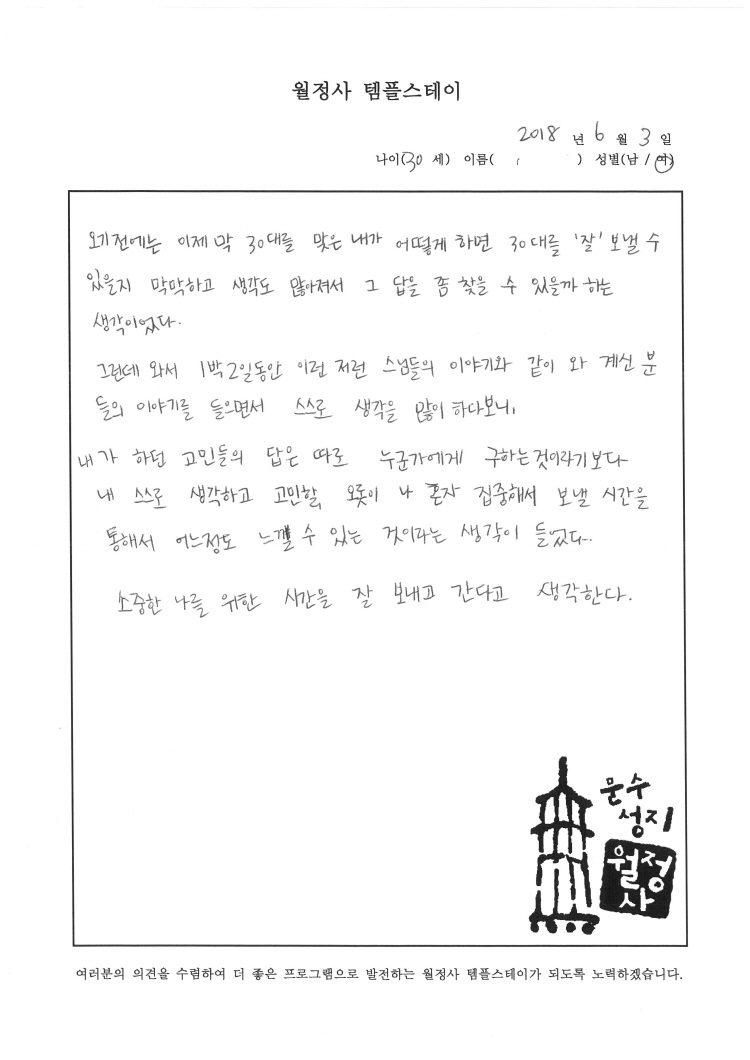 월정사 템플스테이
2018 년 6 월 3 일
나이(30 세) 이름( ) 성별(남 / 여)
오기전에는 이제 막 30대를 맞은 내가 어떻게 하면 30대를 '잘' 보낼 수
있을지 막막하고 생각도 많아져서 그 답을 좀 찾을 수 있을까 하는
생각이었다.
그런데 와서 1박2일동안 이런 저런 스님들의 이야기와 같이 와 계신 분
들의 이야기를 들으면서 스스로 생각을 많이 하다보니,
내가 하던 고민들의 답은 따로 누군가에게 구하는것이라기보다
내 스스로 생각하고 고민할, 오롯이 나 혼자 집중해서 보낼 시간을
통해서 어느정도 느낄 수 있는 것이라는 생각이 들었다..
소중한 나를 위한 시간을 잘 보내고 간다고 생각한다.
문수
성지
월정
사
여러분의 의견을 수렴하여 더 좋은 프로그램으로 발전하는 월정사 템플스테이가 되도록 노력하겠습니다.